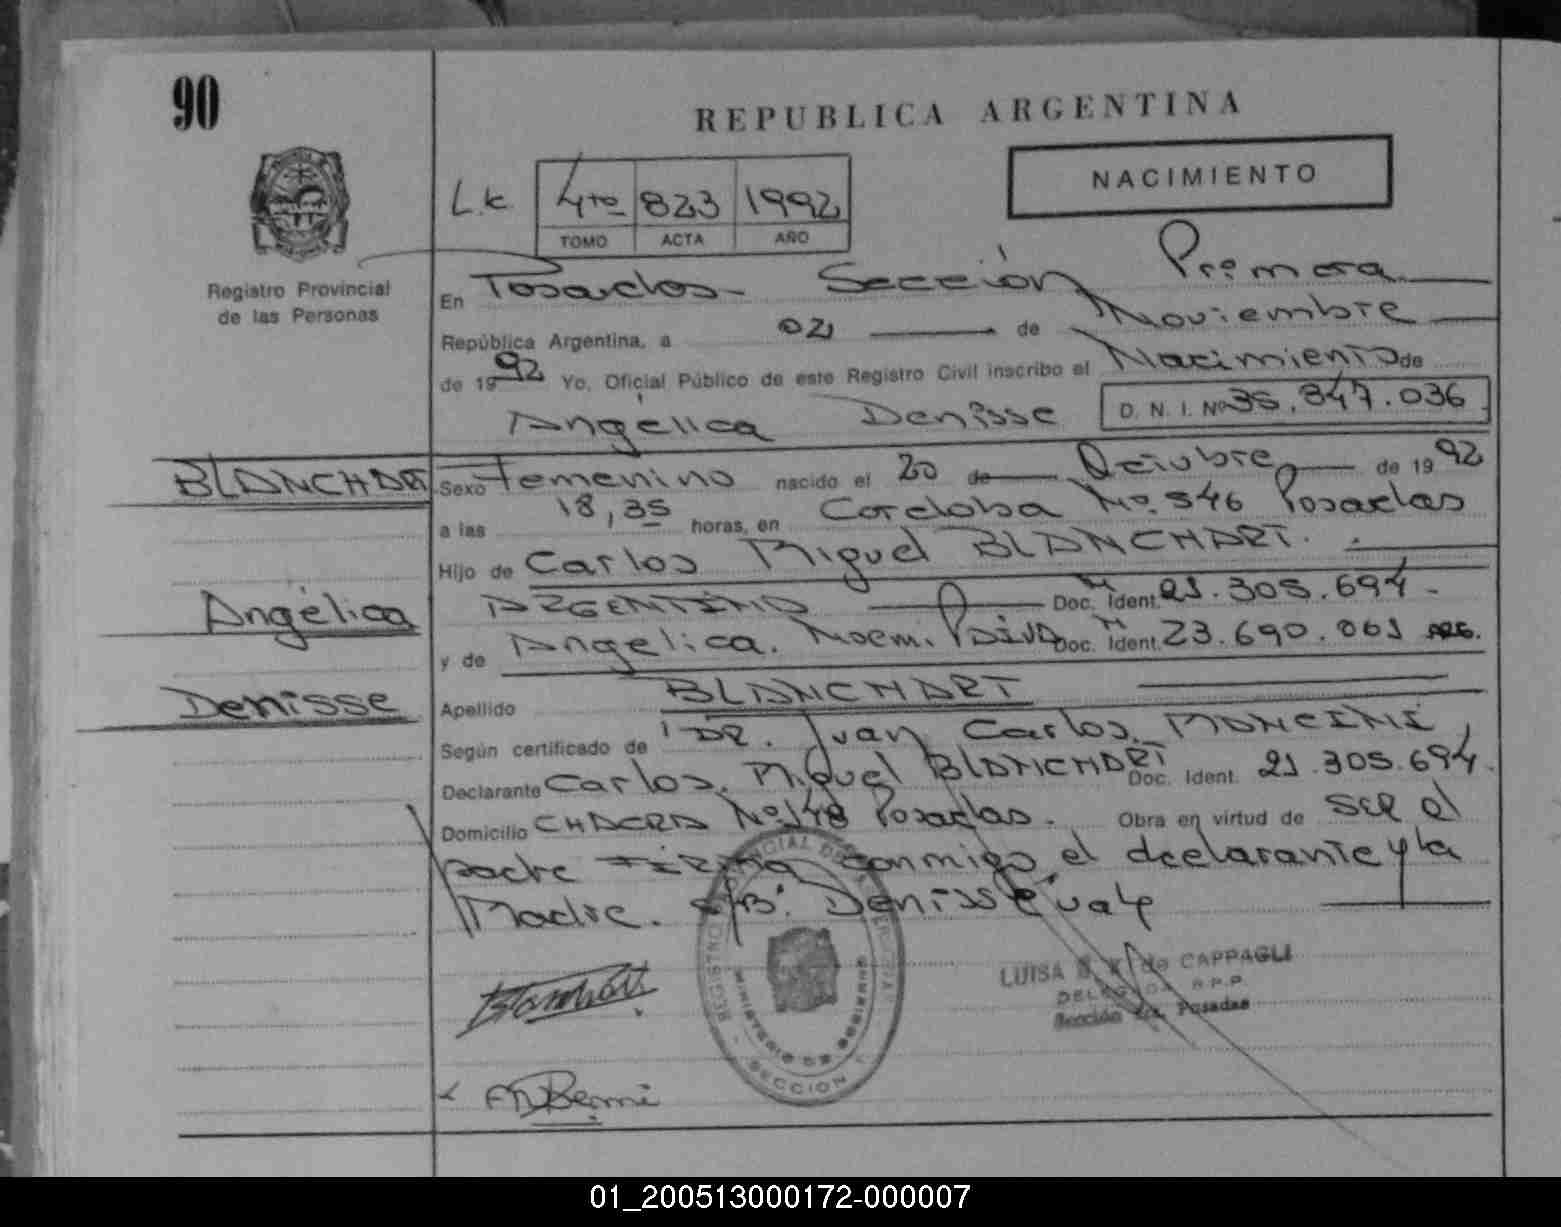 90
REPUBLICA ARGENTINA
NACIMIENTO
L.K.
4to 823 1992
TOMO ACTA AÑO
Registro Provincial
de las Personas
En Posadas - Sección Primera
República Argentina, a 02 de Noviembre
de 1992 Yo, Oficial Público de este Registro Civil inscribo el Nacimiento de
Angélica Denisse D. N. I. Nº 35.847.036
BLANCHART
Sexo Femenino nacido el 20 de Octubre de 1992
a las 18,35 horas, en Cordoba Nº. 546 Posadas
Hijo de Carlos Miguel BLANCHART.
Angélica
ARGENTINO Doc. Ident. M 21.305.694.-
y de Angelica. Noemi Paiva Doc. Ident. M 23.690.061 ARG.
Denisse
Apellido BLANCHART
Según certificado de DR. Juan Carlos. MANCINI
Declarante Carlos. Miguel BLANCHART Doc. Ident. 21.305.694.
Domicilio CHACRA Nº.148 Posadas. Obra en virtud de ser el
padre Firma conmigo el declarante y la
Madre. s/B: Denisse vale
LUISA de CAPPAGLI
DELEGADA R.P.P.
Sección 1ra. Posadas
REGISTRO PROVINCIAL DE LAS PERSONAS
MINISTERIO DE GOBIERNO
SECCION 1
01_200513000172-000007